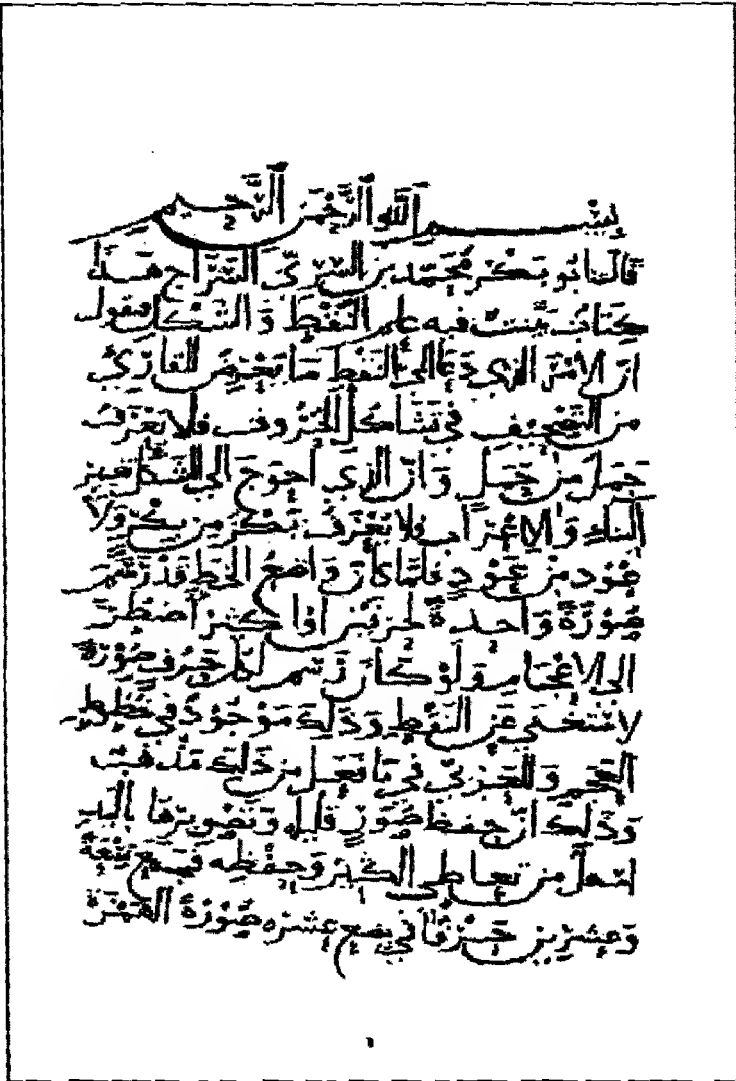 بسم الله الرحمن الرحيم
قال ابو بكر محمد بن السري السراج هذا
كتاب بينت فيه علم النقط والشكل فنقول
ان الامر الذي دعا الى النقط ما يعترض للقارئ
من التصحيف في تشاكل الحروف فلا يعرف
حمل من جمل وان الذي احوج الى الشكل تغيير
البناء والاعراب ولا يعرف بكر من بكر ولا
من فلما كان واضع الخط قد رسم
صورة واحدة لحرفين او اكثر اضطر
الى الاعجام ولو كان رسم لكل حرف صورة
لاستغنى عن النقط وذلك موجود في خطوط
العجم وللعرب في ما تفعل من ذلك مذهب
وذلك ان حفظ صور قليلة وتصويرها باليد
اسهل من تعاطي الكثير وحفظه تسعة
وعشرين حرفا في بضع عشرة صورة الهمزة
١